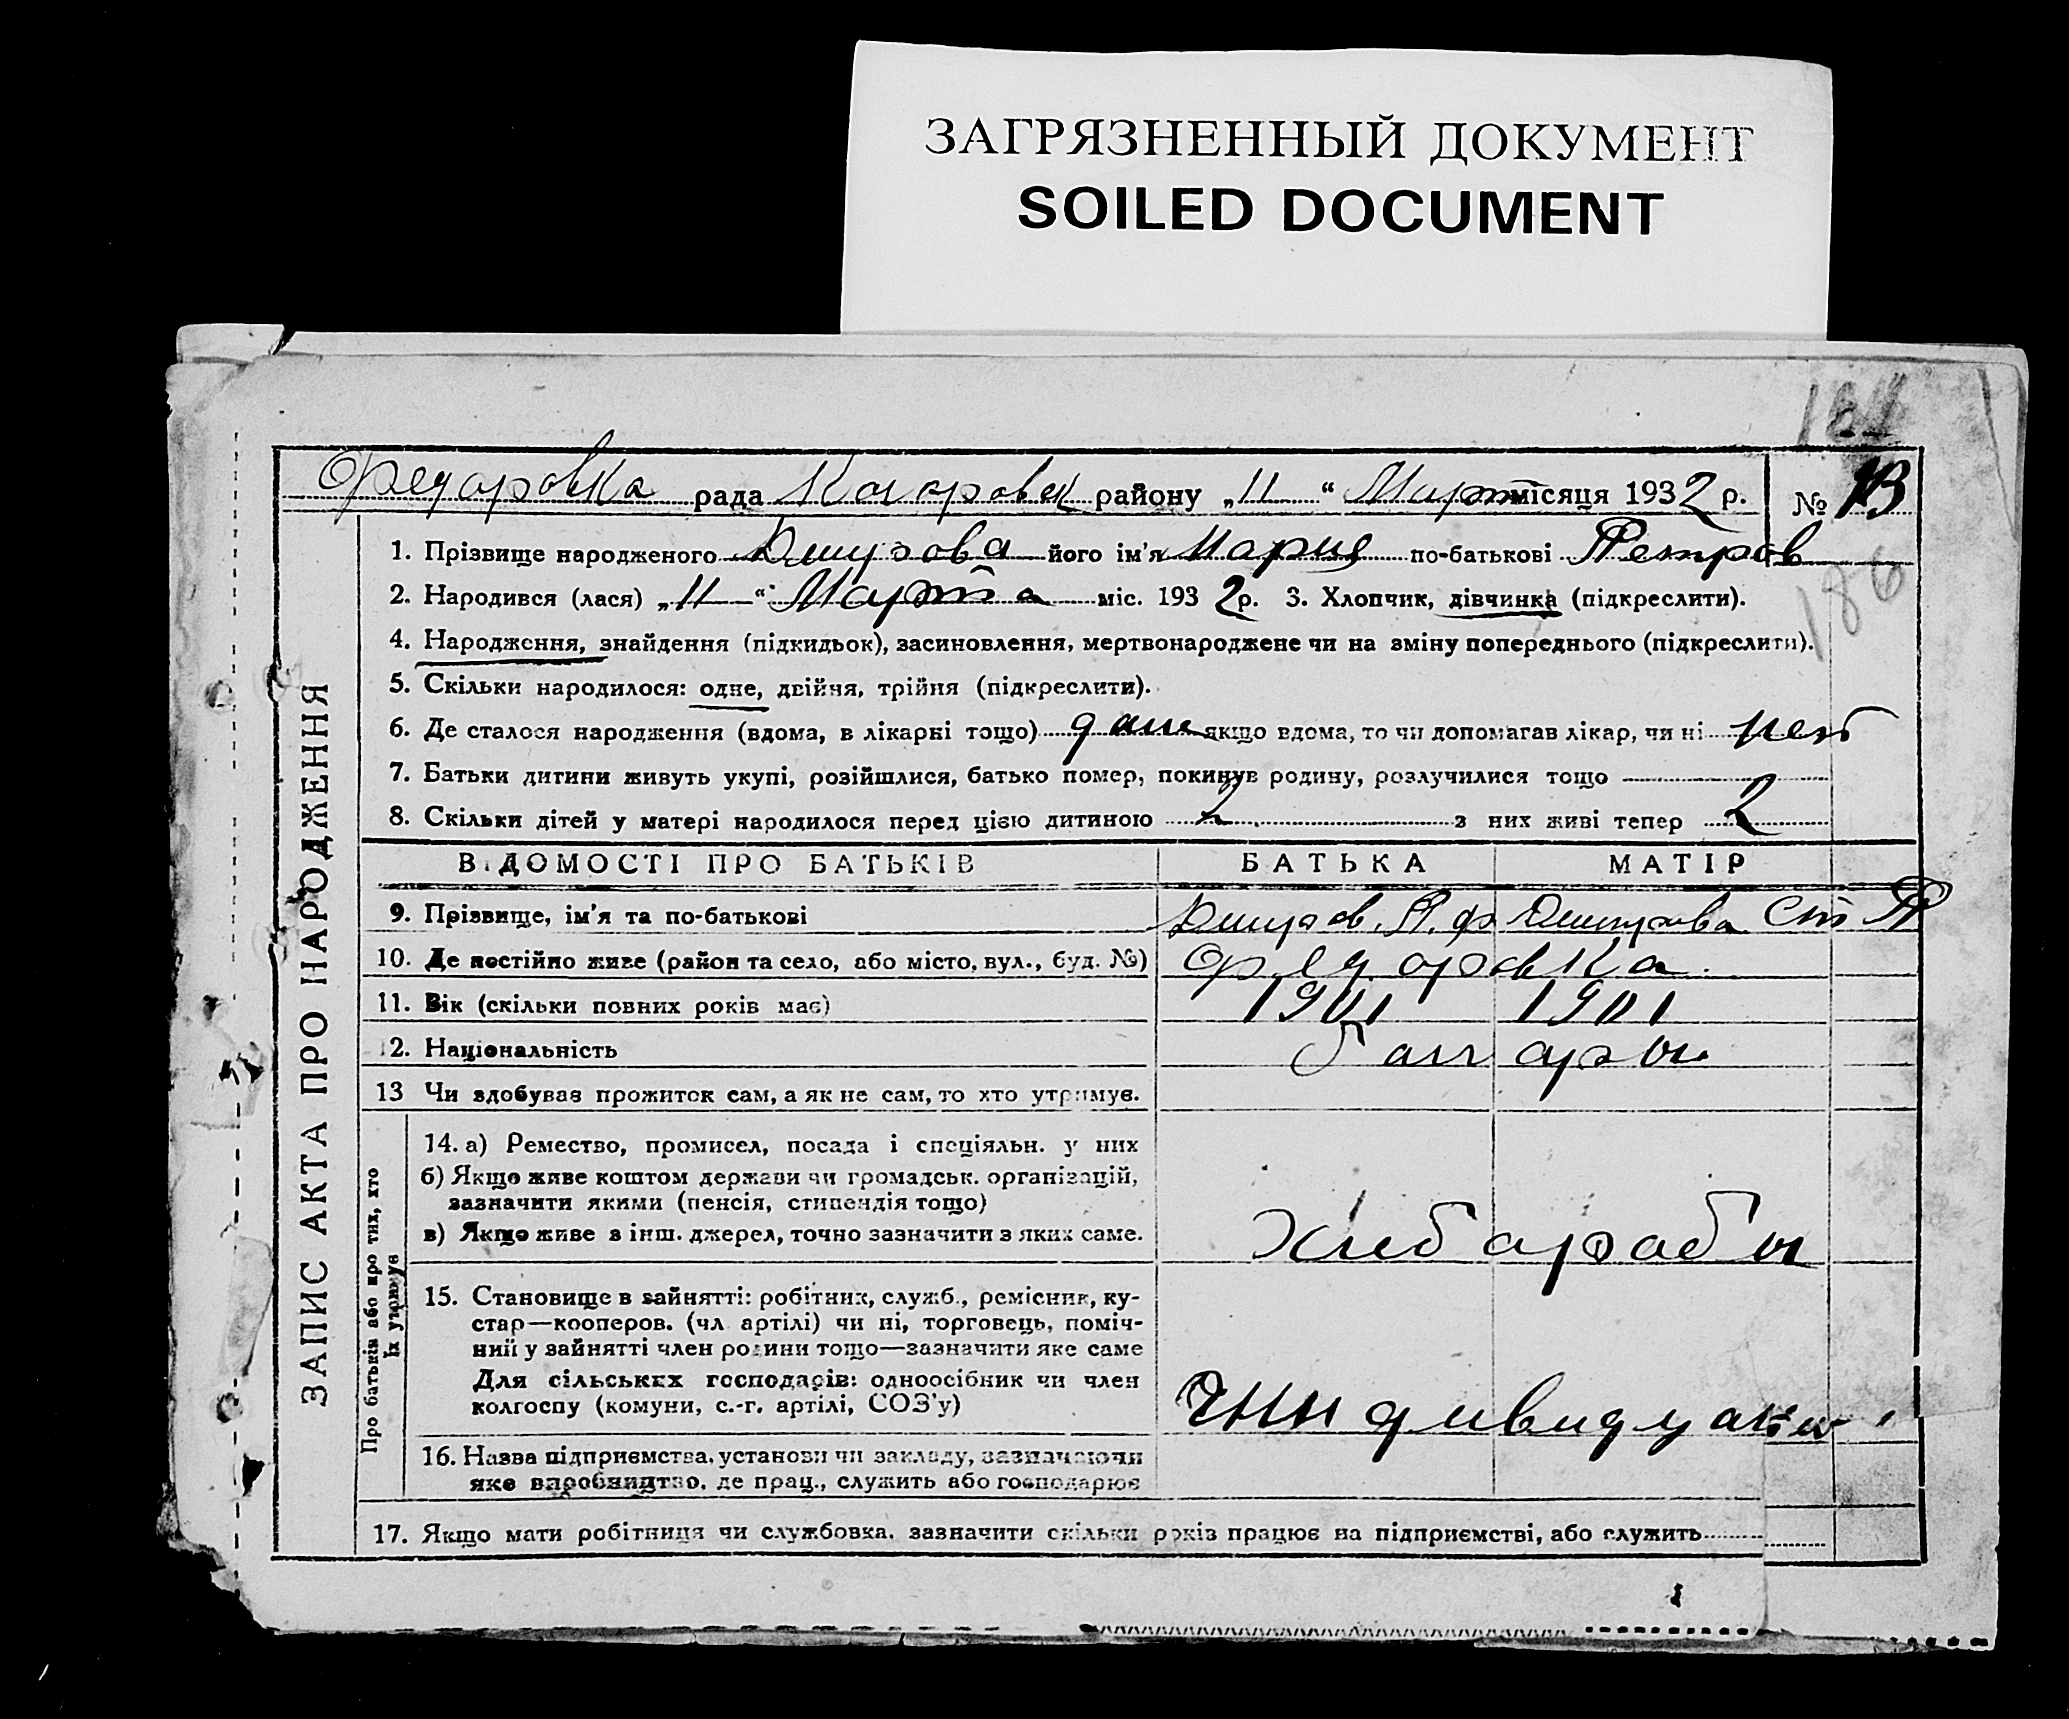 ЗАГРЯЗНЕННЫЙ ДОКУМЕНТ
SOILED DOCUMENT
Федоровка рада района „11“ Март місяця 1932 р. № 13
186
1. Прізвище народженого його ім'я Мария по-батькові Петров
2. Народився (лася) „11“ Марта міс. 1932 р. 3. Хлопчик, дівчинка (підкреслити).
4. Народження, знайдення (підкидьок), засиновлення, мертвонароджене чи на зміну попереднього (підкреслити).
5. Скільки народилося: одне, двійня, трійня (підкреслити).
6. Де сталося народження (вдома, в лікарні тощо) дома якщо вдома, то чи допомагав лікар, чи ні нет
7. Батьки дитини живуть укупі, розійшлися, батько помер, покинув родину, розлучилися тощо
8. Скільки дітей у матері народилося перед цією дитиною 2 з них живі тепер 2
ВІДОМОСТІ ПРО БАТЬКІВ БАТЬКА МАТІР
9. Прізвище, ім'я та по-батькові
10. Де постійно живе (район та село, або місто, вул., буд. №) Федоровка
11. Вік (скільки повних років має) 1901 1901
12. Національність болгары
13 Чи здобував прожиток сам, а як не сам, то хто утримує.
14. а) Ремество, промисел, посада і спеціяльн. у них
б) Якщо живе коштом держави чи громадськ. організацій,
зазначити якими (пенсія, стипендія тощо)
в) Якщо живе з інш. джерел, точно зазначити з яких саме.
хлебаробы
15. Становище в зайнятті: робітник, служб., ремісник, ку-
стар—кооперов. (чл артілі) чи ні, торговець, поміч-
ний у зайнятті член родини тощо—зазначити яке саме
Для сільських господарів: одноосібник чи член
колгоспу (комуни, с.-г. артілі, СОЗ'у)
16. Назва підприємства, установи чи закладу, зазначаючи
яке виробництво, де прац., служить або господарює
17. Якщо мати робітниця чи службовка, зазначити скільки років працює на підприємстві, або служить
ЗАПИС АКТА ПРО НАРОДЖЕННЯ
Про батьків або про тих, хто
їх утримує